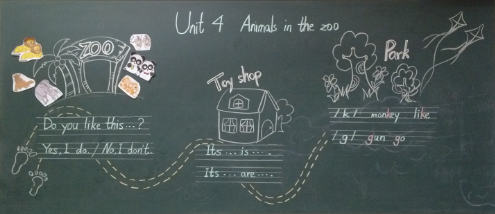 Unit 4 Animals in the zoo
ZOO
Do you like this...?
Yes, I do. / No, I don't.
Toy shop
Its ... is ....
Its ... are ....
Park
/k/ monkey like
/g/ gun go